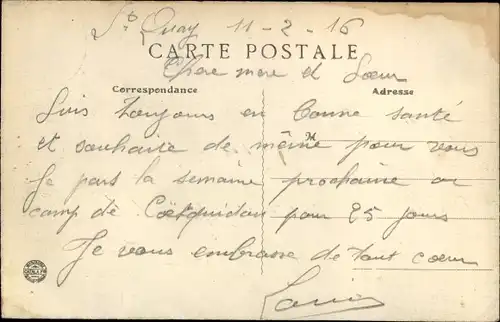 St Quay 11-2-16
CARTE POSTALE
Chere mere et Sœur
Correspondance
Adresse
Suis toujours en bonne santé
et souhaite de même pour vous
Je pars la semaine prochaine au
camp de Coëtquidan pour 25 jours
Je vous embrasse de tout cœur
Louis